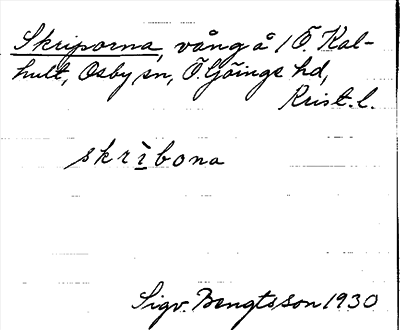 Skriporna, vång å 1 Ö. Kal-
hult, Osby sn, Ö. Göings hd,
Krist. l.
skrìbona
Sigv. Bengtsson 1930